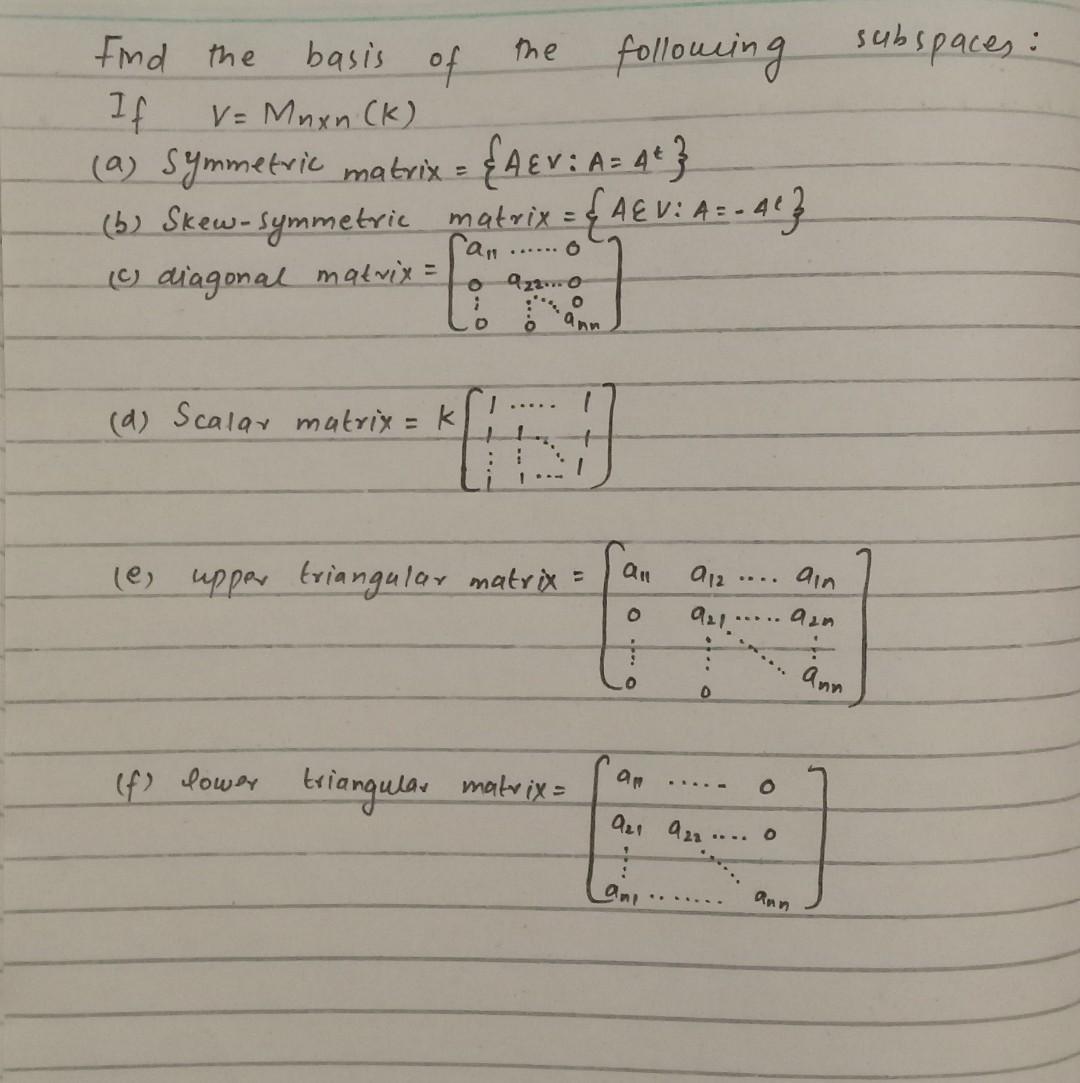 Find the basis of the following subspaces:
If V = Mnxn (K)
(a) Symmetric matrix = {A ∈ V : A = Aᵗ}
(b) Skew-symmetric matrix = {A ∈ V : A = - Aᵗ}
(c) diagonal matrix = [a₁₁ ...... 0
0 a₂₂... 0
⋮ ⋮ ⋱ 0
0 0 aₙₙ]
(d) Scalar matrix = K [1 ..... 1
1 1 ⋱ 1
⋮ ⋮ ⋱ 1
1 1 ....]
(e) upper triangular matrix = [a₁₁ a₁₂ .... a₁ₙ
0 a₂₁ ..... a₂ₙ
⋮ ⋮ ⋱ ⋮
0 0 aₙₙ]
(f) lower triangular matrix = [a₁₁ ...... 0
a₂₁ a₂₂ .... 0
⋮ ⋱
aₙ₁ ........ aₙₙ]